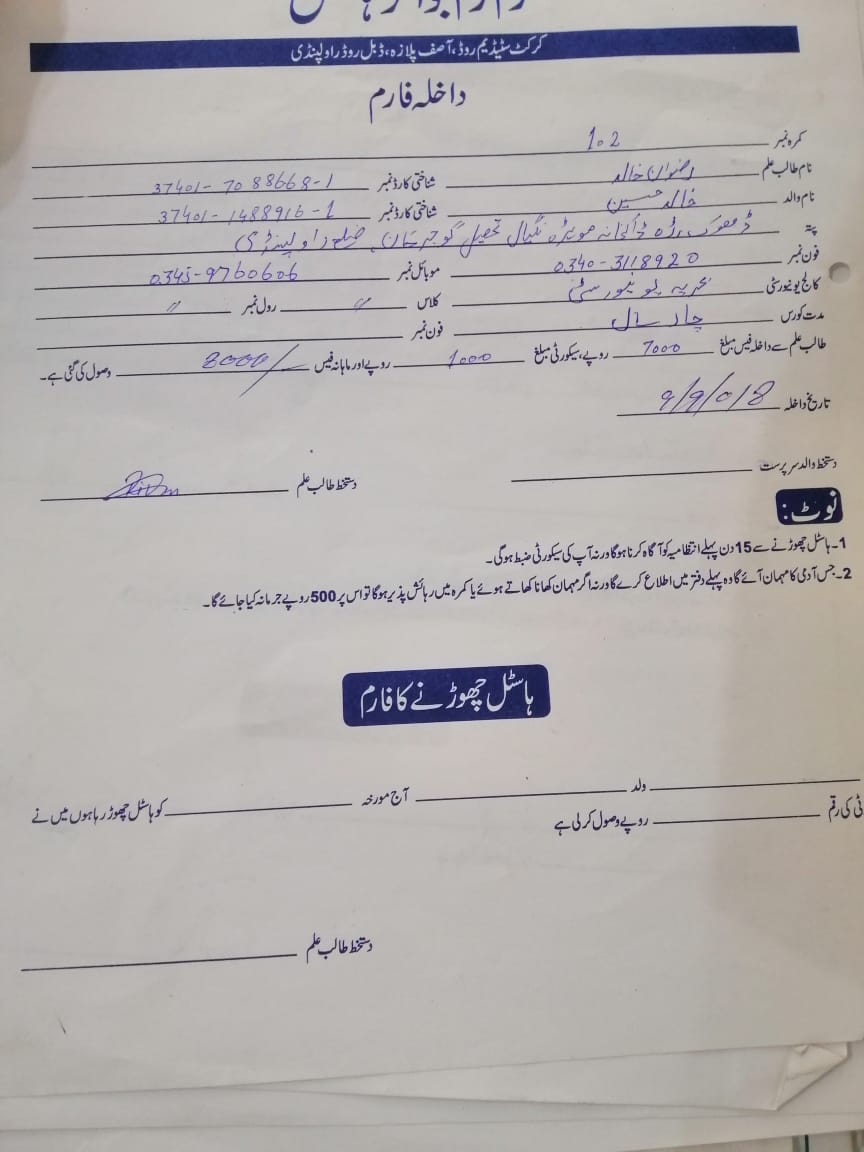 کرکٹ سٹیڈیم روڈ، آصف پلازہ، ڈبل روڈ راولپنڈی
داخلہ فارم
کمرہ نمبر 102
نام طالب علم رضوان خالد شناختی کارڈ نمبر 37401-7088668-1
نام والد خالد حسین شناختی کارڈ نمبر 37401-1488916-1
پتہ ڈھوک ڈاکخانہ تحصیل گوجرخان، ضلع راولپنڈی
فون نمبر 0340-3118920 موبائل نمبر 0345-9760606
کالج یونیورسٹی بحریہ یونیورسٹی کلاس " رول نمبر "
مدت کورس چار سال فون نمبر
طالب علم سے داخلہ فیس مبلغ 7000 روپے، سیکورٹی مبلغ 1000 روپے اور ماہانہ فیس 8000/- وصول کی گئی ہے۔
تاریخ داخلہ 9/9/018
دستخط والد سرپرست
دستخط طالب علم
نوٹ:
1۔ ہاسٹل چھوڑنے سے 15 دن پہلے انتظامیہ کو آگاہ کرنا ہوگا ورنہ آپ کی سیکورٹی ضبط ہوگی۔
2۔ جس آدمی کا مہمان آئے گا وہ پہلے دفتر میں اطلاع کرے گا ورنہ اگر مہمان کھانا کھاتے ہوئے یا کمرہ میں رہائش پذیر ہوگا تو اس پر 500 روپے جرمانہ کیا جائے گا۔
ہاسٹل چھوڑنے کا فارم
ولد آج مورخہ کو ہاسٹل چھوڑ رہا ہوں میں نے
ٹی کی رقم روپے وصول کر لی ہے
دستخط طالب علم